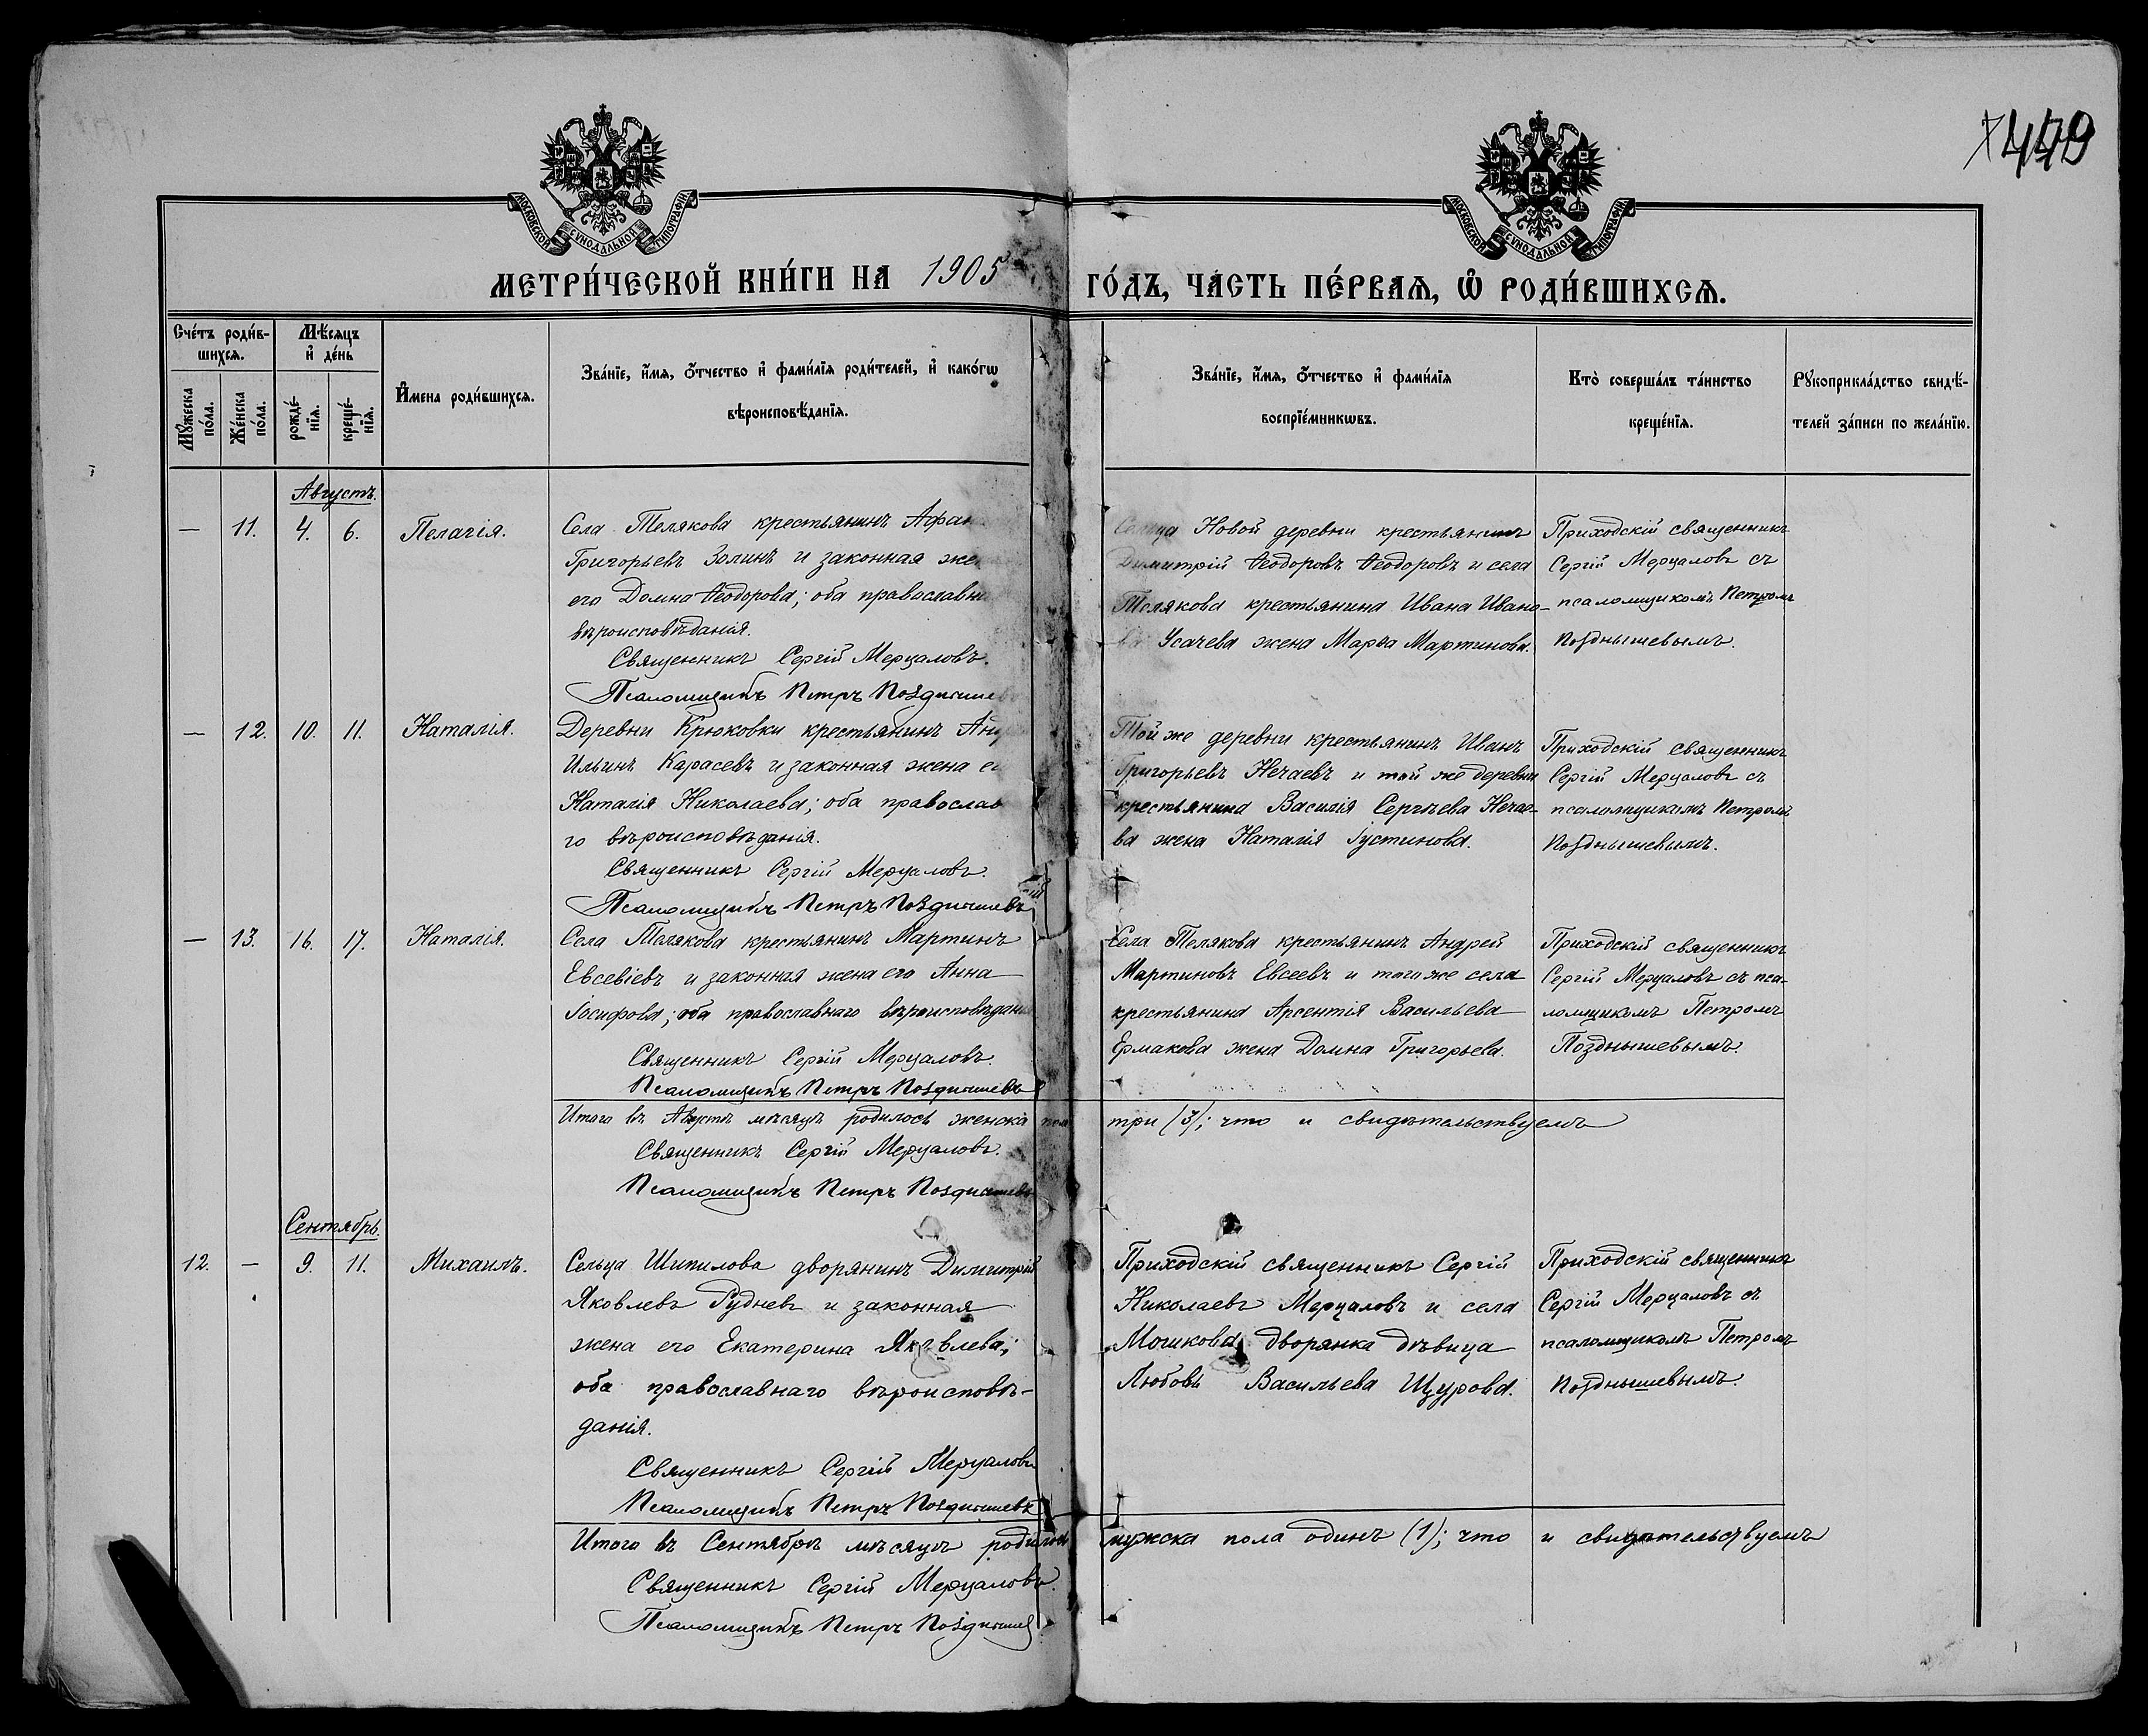 449
МОСКОВСКОЙ СѴНОДАЛЬНОЙ ТИПОГРАФІИ
МОСКОВСКОЙ СѴНОДАЛЬНОЙ ТИПОГРАФІИ
МЕТРИ́ЧЕСКОЙ КНИ́ГИ НА 1905 ГО́ДЪ, ЧА́СТЬ ПЕ́РВАѦ, Ѽ РОДИ́ВШИХСѦ.
Сче́тъ роди́в-
шихся.
Мꙋ́жеска по́ла.
Же́нска по́ла.
Мѣ́сяцъ
и҆ де́нь
рожде́-
нїя.
креще́-
нїя.
И҆мена роди́вшихся.
Зва́нїе, и҆́мя, ѻ҆́тчество и҆ фами́лїя роди́телей, и҆ како́гѡ
вѣроисповѣ́данїя.
Зва́нїе, и҆́мя, ѻ҆́тчество и҆ фами́лїя
воспрїе́мникѡвъ.
Кто̀ соверша́лъ та́инство
креще́нїя.
Рꙋкоприкла́дство свидѣ́-
телей за́писи по жела́нїю.
Августъ.
— 11. 4. 6. Пелагія.
Села Телякова крестьянинъ Афан
Григорьевъ Золинъ и законная же
его Домна Ѳеодорова; оба православн
вѣроисповѣданія.
Священникъ Сергій Мерцаловъ.
Псаломщикъ Петръ Позднышев
Сельца Новой деревни крестьянинъ
Димитрій Ѳеодоровъ Ѳеодоровъ и села
Телякова крестьянина Ивана Ивано-
ва Усачева жена Марѳа Мартинова.
Приходскій священникъ
Сергій Мерцаловъ съ
псаломщикомъ Петромъ
Позднышевымъ.
— 12. 10. 11. Наталія.
Деревни Крюковки крестьянинъ Анд
Ильинъ Карасевъ и законная жена е
Наталія Николаева; оба православ
го вѣроисповѣданія.
Священникъ Сергій Мерцаловъ.
Псаломщикъ Петръ Позднышевъ
Той же деревни крестьянинъ Иванъ
Григорьевъ Нечаевъ и той же деревни
крестьянина Василія Сергѣева Нечае-
ва жена Наталія Іустинова.
Приходскій священникъ
Сергій Мерцаловъ съ
псаломщикомъ Петромъ
Позднышевымъ.
— 13. 16. 17. Наталія.
Села Телякова крестьянинъ Мартинъ
Евсевіевъ и законная жена его Анна
Іосифова; оба православнаго вѣроисповѣданія
Священникъ Сергій Мерцаловъ.
Псаломщикъ Петръ Позднышевъ
Села Телякова крестьянинъ Андрей
Мартиновъ Евсеевъ и того же села
крестьянина Арсентія Васильева
Ермакова жена Домна Григорьева.
Приходскій священникъ
Сергій Мерцаловъ съ пса-
ломщикомъ Петромъ
Позднышевымъ.
Итого въ Августѣ мѣсяцѣ родилось женска пола три (3); что и свидѣтельствуемъ
Священникъ Сергій Мерцаловъ.
Псаломщикъ Петръ Позднышевъ
Сентябрь.
12. — 9. 11. Михаилъ.
Сельца Шипилова дворянинъ Димитрій
Яковлевъ Рудневъ и законная
жена его Екатерина Яковлева;
оба православнаго вѣроисповѣ-
данія.
Священникъ Сергій Мерцаловъ
Псаломщикъ Петръ Позднышевъ
Приходскій священникъ Сергій
Николаевъ Мерцаловъ и села
Мошкова дворянка дѣвица
Любовь Васильева Щурова.
Приходскій священникъ
Сергій Мерцаловъ съ
псаломщикомъ Петромъ
Позднышевымъ.
Итого въ Сентябрѣ мѣсяцѣ родилось мужска пола одинъ (1); что и свидѣтельствуемъ
Священникъ Сергій Мерцаловъ.
Псаломщикъ Петръ Позднышев